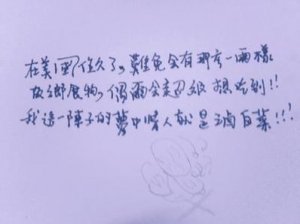 在美国住久了,難免会有那么一兩樣
故鄉食物,偶爾会超級想吃到!!
我這一陣子的夢中情人就是滷白菜!!!